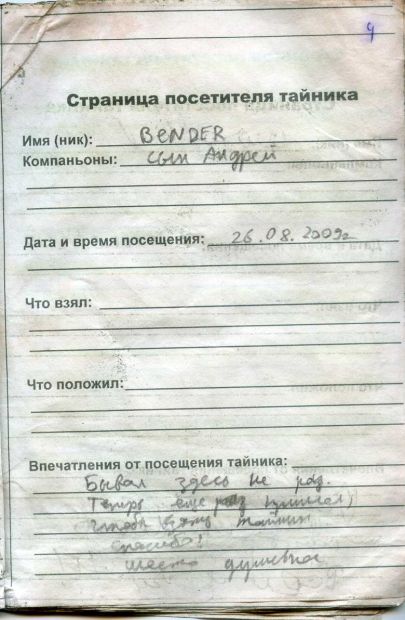 9
Страница посетителя тайника
Имя (ник): BENDER
Компаньоны: сын Андрей
Дата и время посещения: 26.08.2009г
Что взял:
Что положил:
Впечатления от посещения тайника:
Бывал здесь не раз.
Теперь еще раз
чтобы взять тайник
спасибо!
место душевное